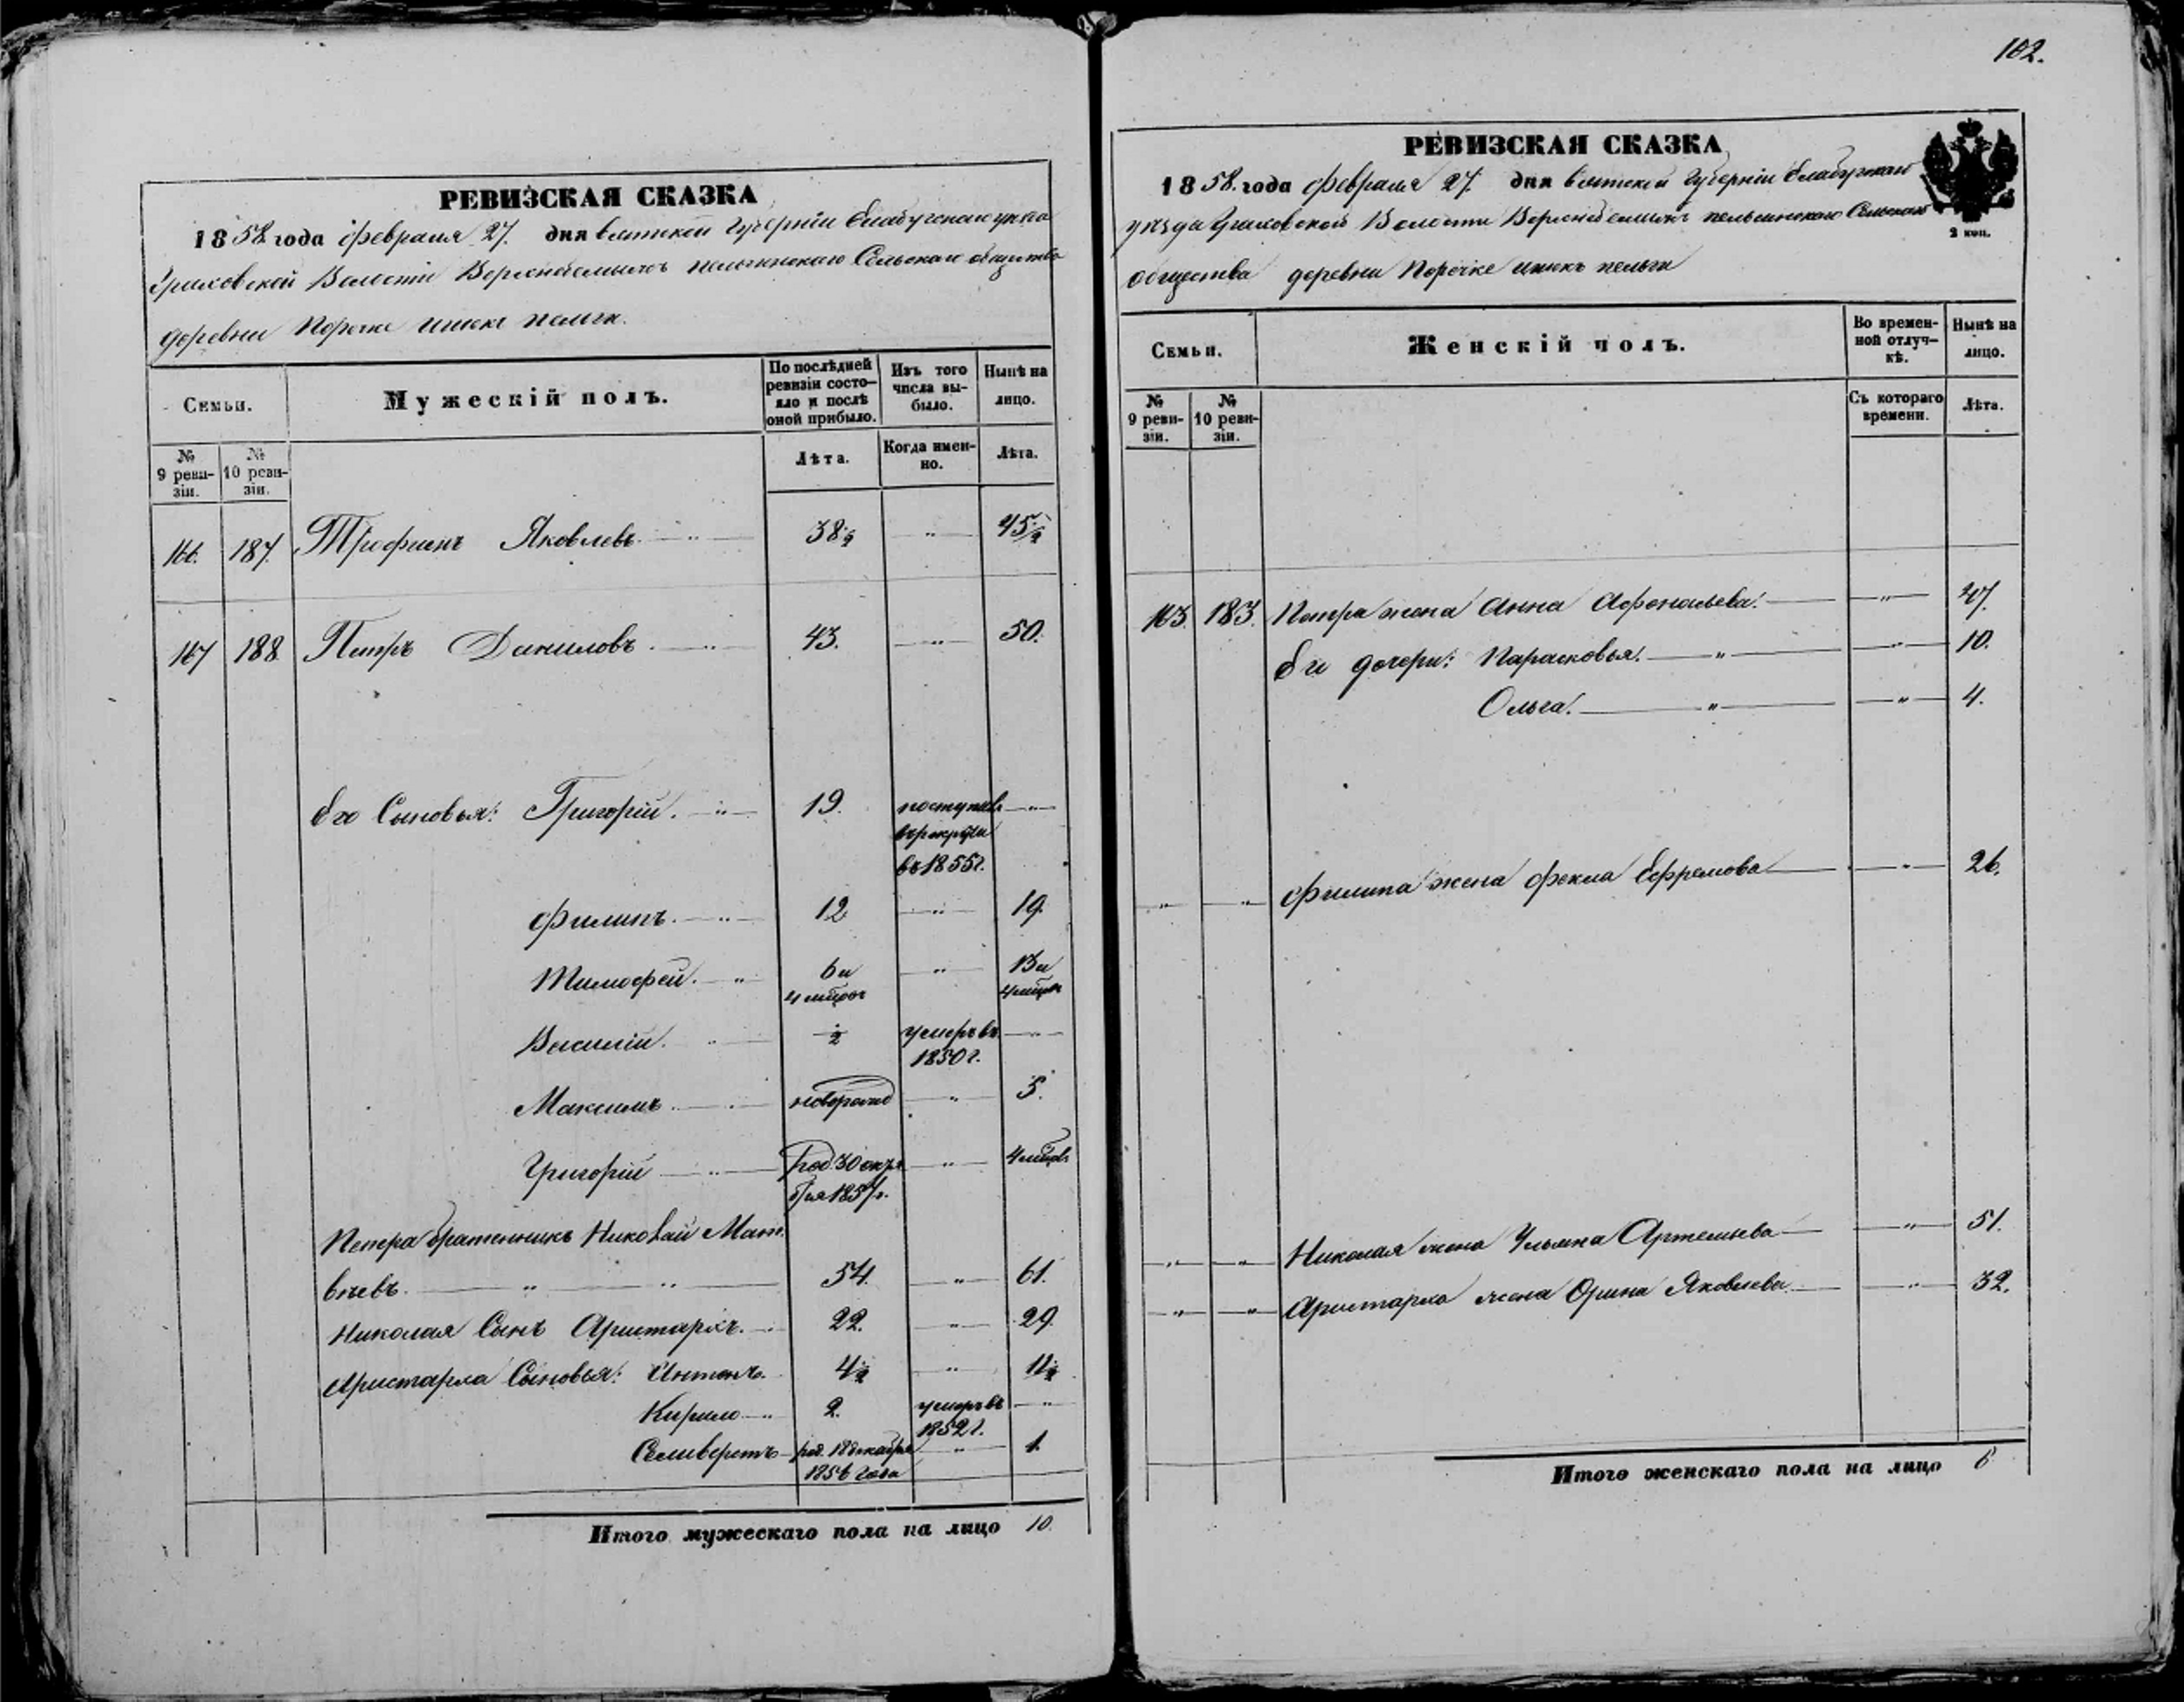 102.
РЕВИЗСКАЯ СКАЗКА
1858 года Февраля 27. дня Вятской Губерніи Елабужскаго уѣзда
Граховской Волости Верхнебемыжъ пельгинскаго Сельскаго общества
деревни Порочке пельги.
Семьи.
Мужескій полъ.
По послѣдней ревизіи состояло и послѣ оной прибыло.
Изъ того числа выбыло.
Нынѣ на лицо.
№ 9 ревизіи.
№ 10 ревизіи.
Лѣта.
Когда именно.
Лѣта.
166. 187. Трофимъ Яковлевъ 38½ " 45½
167 188 Петръ Даниловъ. 43. " 50.
Его Сыновья: Григорій. 19. поступилъ "
въ рекруты
въ 1855 г.
Филипъ. 12 " 19.
Тимофей. 6 и " 13 и
4 мѣсяц 4 мѣсяц
Василій. ½ умеръ въ "
1850 г.
Максимъ. новорожд " 5.
Григорій Род. 30 октя " 4 мѣсяц
бря 1857 г.
Петра братенникъ Николай Мат
вѣевъ. " " 54. " 61.
Николая Сынъ Аристархъ. 22. " 29.
Аристарха Сыновья: Антонъ. 4½ " 11½
Кирило " 2. умеръ въ "
1852 г.
Селиверстъ род. 18 декабря " 1.
1856 года
Итого мужескаго пола на лицо 10.
РЕВИЗСКАЯ СКАЗКА
1858. года Февраля 27. дня Вятской Губерніи Елабужскаго
уѣзда Граховской Волости Верхнебемыжъ пельгинскаго Сельскаго
2 коп.
общества деревни Порочке пельги
Семьи.
Женскій полъ.
Во временной отлучкѣ.
Нынѣ на лицо.
№ 9 ревизіи.
№ 10 ревизіи.
Съ котораго времени.
Лѣта.
163. 183. Петра жена Анна Афонасьева. " 47.
Его дочери: Парасковья. " " 10.
Ольга. " " 4.
" " Филипа жена Фекла Ефремова " 26.
" " Николая жена Ульяна Артемьева " 51.
" " Аристарха жена Орина Яковлева " 32.
Итого женскаго пола на лицо 6